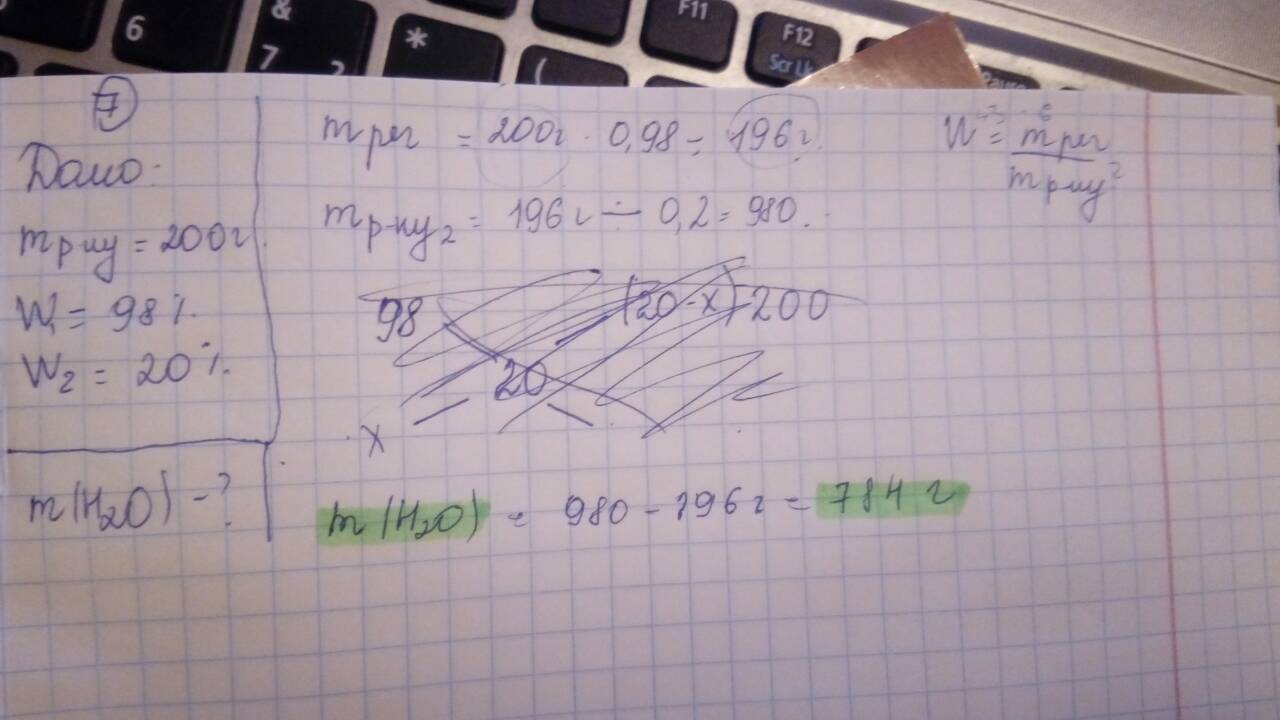 6
&
7
*
(
F11
F12
Scr Lk
Pause
7
Дано:
m р-ну = 200г.
W₁ = 98%.
W₂ = 20%.
m(H₂O) - ?
m реч = 200г · 0,98 = 196г.
m р-ну₂ = 196г ÷ 0,2 = 980.
98 (20-x) 200
20
x
m(H₂O) = 980 - 196г = 784 г
W = m реч / m р-ну